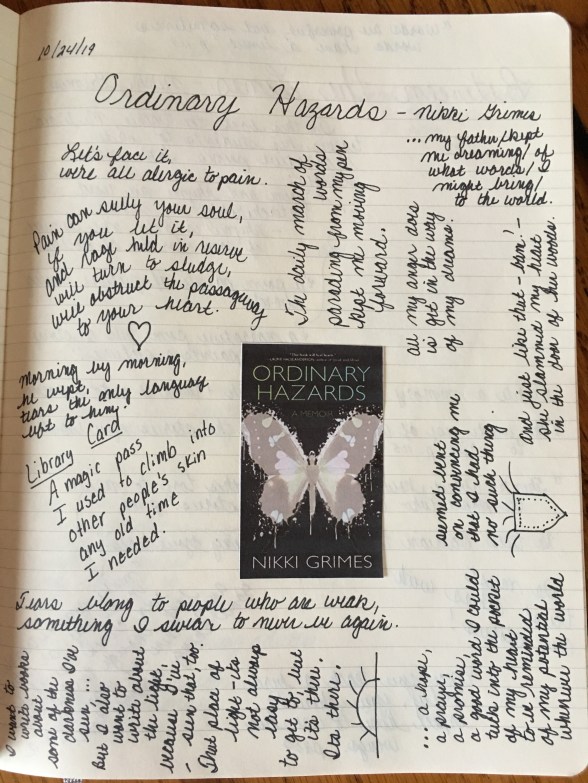 10/24/19
Ordinary Hazards - Nikki Grimes
Let's face it,
we're all alergic to pain.
Pain can sully your soul,
if you let it,
and Rage held in reserve
will turn to sludge,
will obstruct the passageway
to your heart.
The daily march of
words
parading from my pen
kept me moving
forward.
...my father/kept
me dreaming/of
what words/
might bring/
to the world.
all my anger does
is get in the way
of my dreams.
and just like that - bam! -
she slammed my heart
in the door of her words.
morning by morning,
he wept,
tears the only language
left to him.
Library Card
A magic pass
I used to climb into
other people's skin
any old time
I needed.
ORDINARY
HAZARDS
A MEMOIR
NIKKI GRIMES
seemed bent
on convincing me
that I had
no such thing.
Tears belong to people who are weak,
something I swear to never be again.
I want to
write books
about
some of the
darkness I've
seen...
But I also
want to
write about
the light,
because I've
seen that, too.
That place of
light - it's
not always
easy
to get to, but
it's there.
It's there.
... a hope,
a prayer,
a promise,
a good word I could
tuck into the pocket
of my heart
to be reminded
of my potential
whenever the world